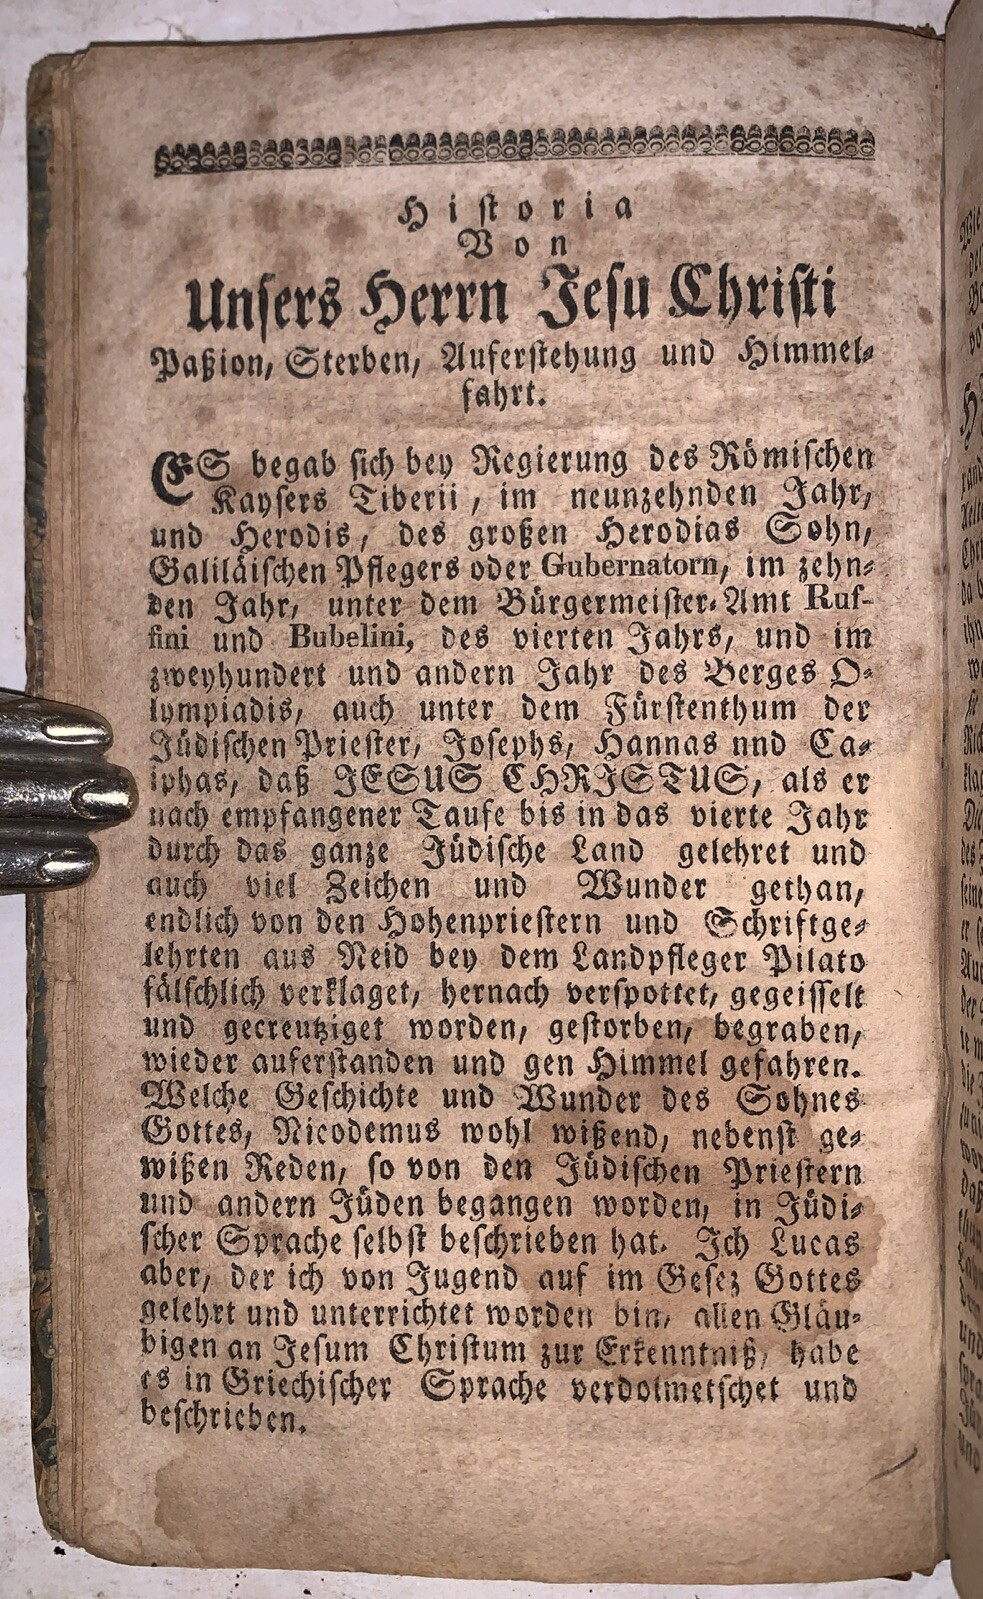 Historia
Von
Unsers Herrn Jesu Christi
Paßion, Sterben, Auferstehung und Himmel-
fahrt.
ES begab sich bey Regierung des Römischen
Kaysers Tiberii, im neunzehnden Jahr,
und Herodis, des großen Herodias Sohn,
Galiläischen Pflegers oder Gubernatorn, im zehn-
den Jahr, unter dem Bürgermeister-Amt Ruf-
fini und Bubelini, des vierten Jahrs, und im
zweyhundert und andern Jahr des Berges O-
lympiadis, auch unter dem Fürstenthum der
Jüdischen Priester, Josephs, Hannas nnd Ca-
iphas, daß JESUS CHRISTUS, als er
nach empfangener Taufe bis in das vierte Jahr
durch das ganze Jüdische Land gelehret und
auch viel Zeichen und Wunder gethan,
endlich von den Hohenpriestern und Schriftge-
lehrten aus Neid bey dem Landpfleger Pilato
fälschlich verklaget, hernach verspottet, gegeisselt
und gecreutziget worden, gestorben, begraben,
wieder auferstanden und gen Himmel gefahren.
Welche Geschichte und Wunder des Sohnes
Gottes, Nicodemus wohl wißend, nebenst ge-
wißen Reden, so von den Jüdischen Priestern
und andern Jüden begangen worden, in Jüdi-
scher Sprache selbst beschrieben hat. Ich Lucas
aber, der ich von Jugend auf im Gesez Gottes
gelehrt und unterrichtet worden bin, allen Gläu-
bigen an Jesum Christum zur Erkenntniß, habe
es in Griechischer Sprache verdolmetschet und
beschrieben.